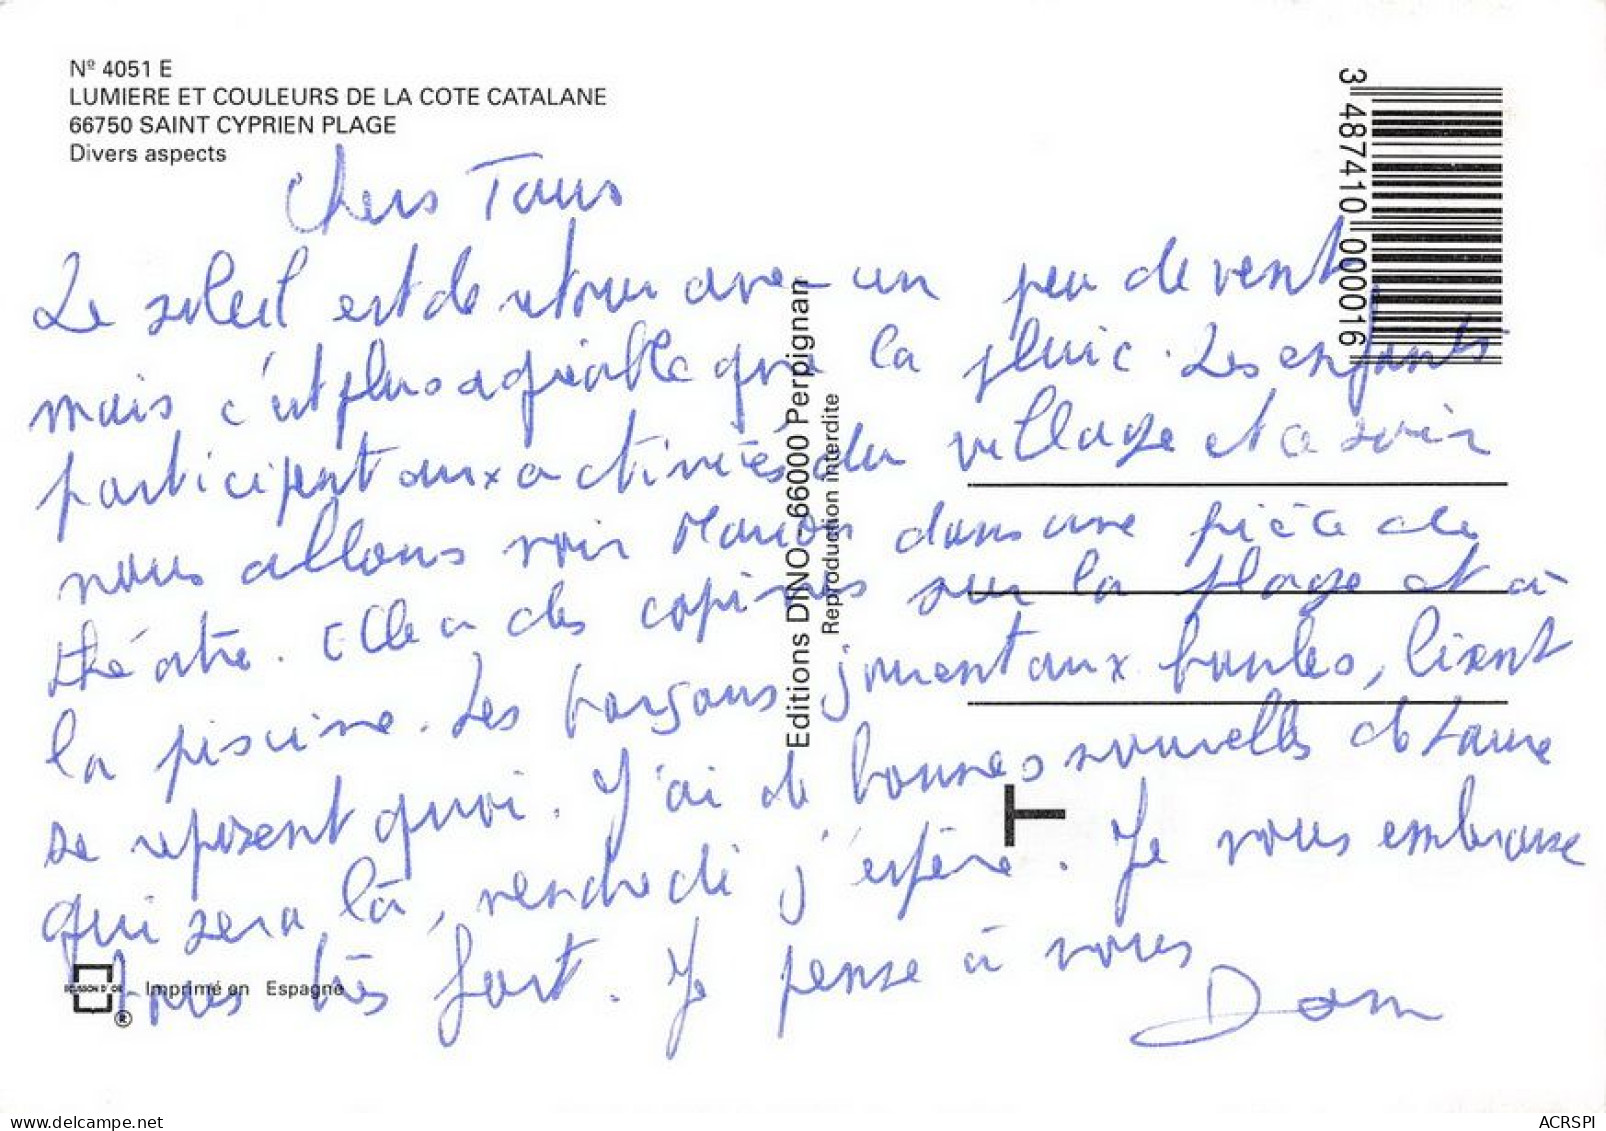 Nº 4051 E
LUMIERE ET COULEURS DE LA COTE CATALANE
66750 SAINT CYPRIEN PLAGE
Divers aspects
3 487410 000016
Chers Tous
Le soleil est de retour avec un peu de vent
mais c'est plus agréable que la pluie. Les enfants
participent aux activités du village et ce soir
nous allons voir Marion dans une pièce de
théâtre. Elle a des copines sur la plage et à
la piscine. Les garçons jouent aux boules, lisent
se reposent quoi. J'ai de bonnes nouvelles de Laure
qui sera là, vendredi j'espère. Je vous embrasse
tous très fort. Je pense à vous
Dom
Editions DINO - 66000 Perpignan
Reproduction interdite
T
ECUSSON D'OR
®
Imprimé en Espagne
www.delcampe.net
ACRSPI